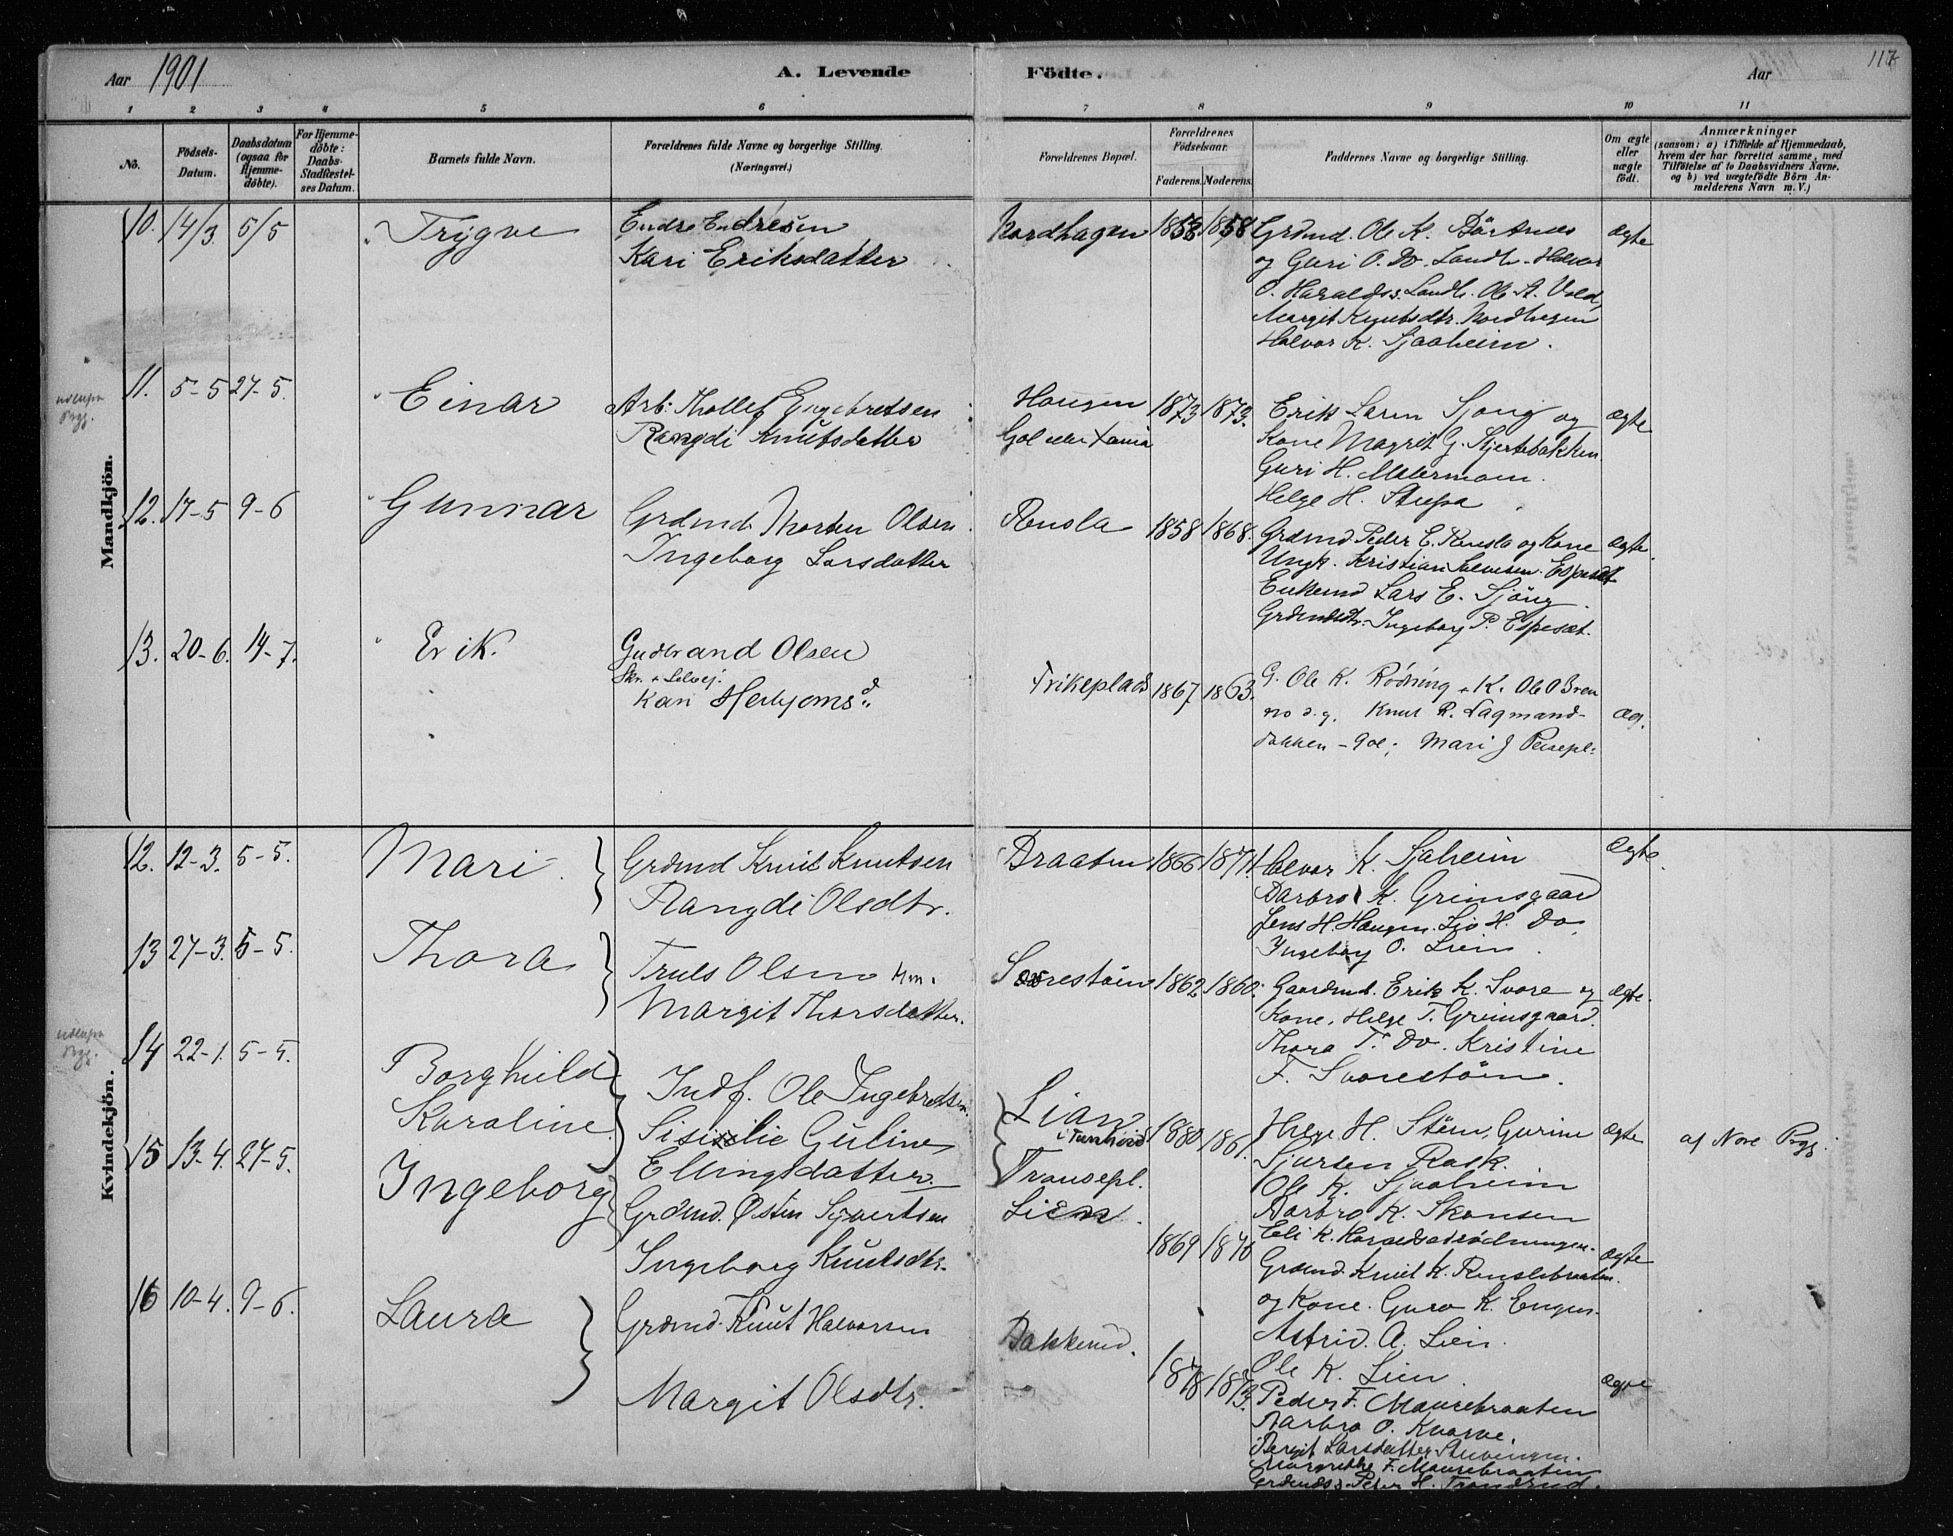 Aar 1901
A. Levende Födte.
Aar
117
1 2 3 4 5 6 7 8 9 10 11
No.
Födsels-Datum.
Daabsdatum (ogsaa for Hjemme-döbte).
For Hjemme-döbte: Daabs-Stadfæstel-ses Datum.
Barnets fulde Navn.
Forældrenes fulde Navne og borgerlige Stilling. (Næringsvei.)
Forældrenes Bopæl.
Forældrenes Födselsaar.
Faderens. Moderens.
Faddernes Navne og borgerlige Stilling.
Om ægte eller uægte födt.
Anmærkninger
(saasom: a) i Tilfælde af Hjemmedaab,
hvem der har forrettet samme, med
Tilföielse af to Daabsvidners Navne,
og b) ved uægtefödte Börn An-
melderens Navn m. V.)
Mandkjön.
10. 14/3 5/5 Trygve
Endre Endresen
Kari Eriksdatter
Nordhagen 1858 1858
Grdmd. Ole K.
og Guri O. Do. Sandh. Halvor
O. Haraldss. Sandh. Ole A. Vold,
Margit Knutsdtr. Nordhagen
Halvor K. Sjaaheim.
ægte
11. 5-5 27-5. Einar
Arb. Tollef Engebretsen
Rangdi Knutsdatter
Haugen
Gol
1873 1873.
Erik Larsen og
Kone Magrit G.
Guri H.
Helge H.
ægte
12. 17-5 9-6 Gunnar
Grdmd. Morten Olsen
Ingeborg Larsdatter
Rensla 1858 1868.
Grdmd Peder E. Rensla og Kone
Ungk. Kristian Espeset
Enkemd Lars E.
Ingeborg P. Espeset.
ægte.
13. 20-6. 14-7. Erik.
Gudbrand Olsen
Kari
1867. 1863.
G. Ole K. Rødning + K. Ole O Bren
no d.y. Knut R. Lagmands-
bakken - Gol; Mari J
æg.
Kvindekjön.
12. 12-3. 5-5. Mari
Grdmd Knut Knutsen
Rangdi Olsdtr.
Braaten 1866 1871.
Halvor K. Sjaheim
Barbro K. Grimsgaard
Jens H. Haugen. Liv H. Do.
Ingeborg O. Lien.
Ægte.
13 27-3. 5-5. Thora
Truls Olsen Hm.
Margit Thorsdatter.
Svorestöin 1862. 1860.
Gaardmd. Erik K. Svore og
Kone. Helge T. Grimsgaard.
Thora T. Do. Kristine
T. Svorestöin.
ægte.
14 22-1. 5-5. Borghild
Karoline.
Indf. Ole Ingebretsen.
Guline
Ellingsdatter.
Lian
i Tunhövd
1880 1861.
Helge H. Stöin, Gurine
Sjursen Rask.
Ole K. Sjaaheim
Barbro K. Skansen
ægte
af Nore Prgj.
15 13-4. 27-5. Ingeborg
Grdmd. Østen Syvertsen
Ingeborg Knutsdtr.
Lien.
1869 1870
Eli K.
Grdmd. Knut K. Renslebraaten.
og Kone. Guro K. Engen.
Astrid. A. Lien.
Ole K. Lien.
ægte
16 10-4. 9-6. Laura
Grdmd. Knut Halvorsen
Margit Olsdtr.
Bakkerud.
1878 1873.
Peder F. Maurebraaten
Barbro O. Kvarve.
Birgit Larsdatter
Margrethe F. Maurebraaten
Peder H.
ægte